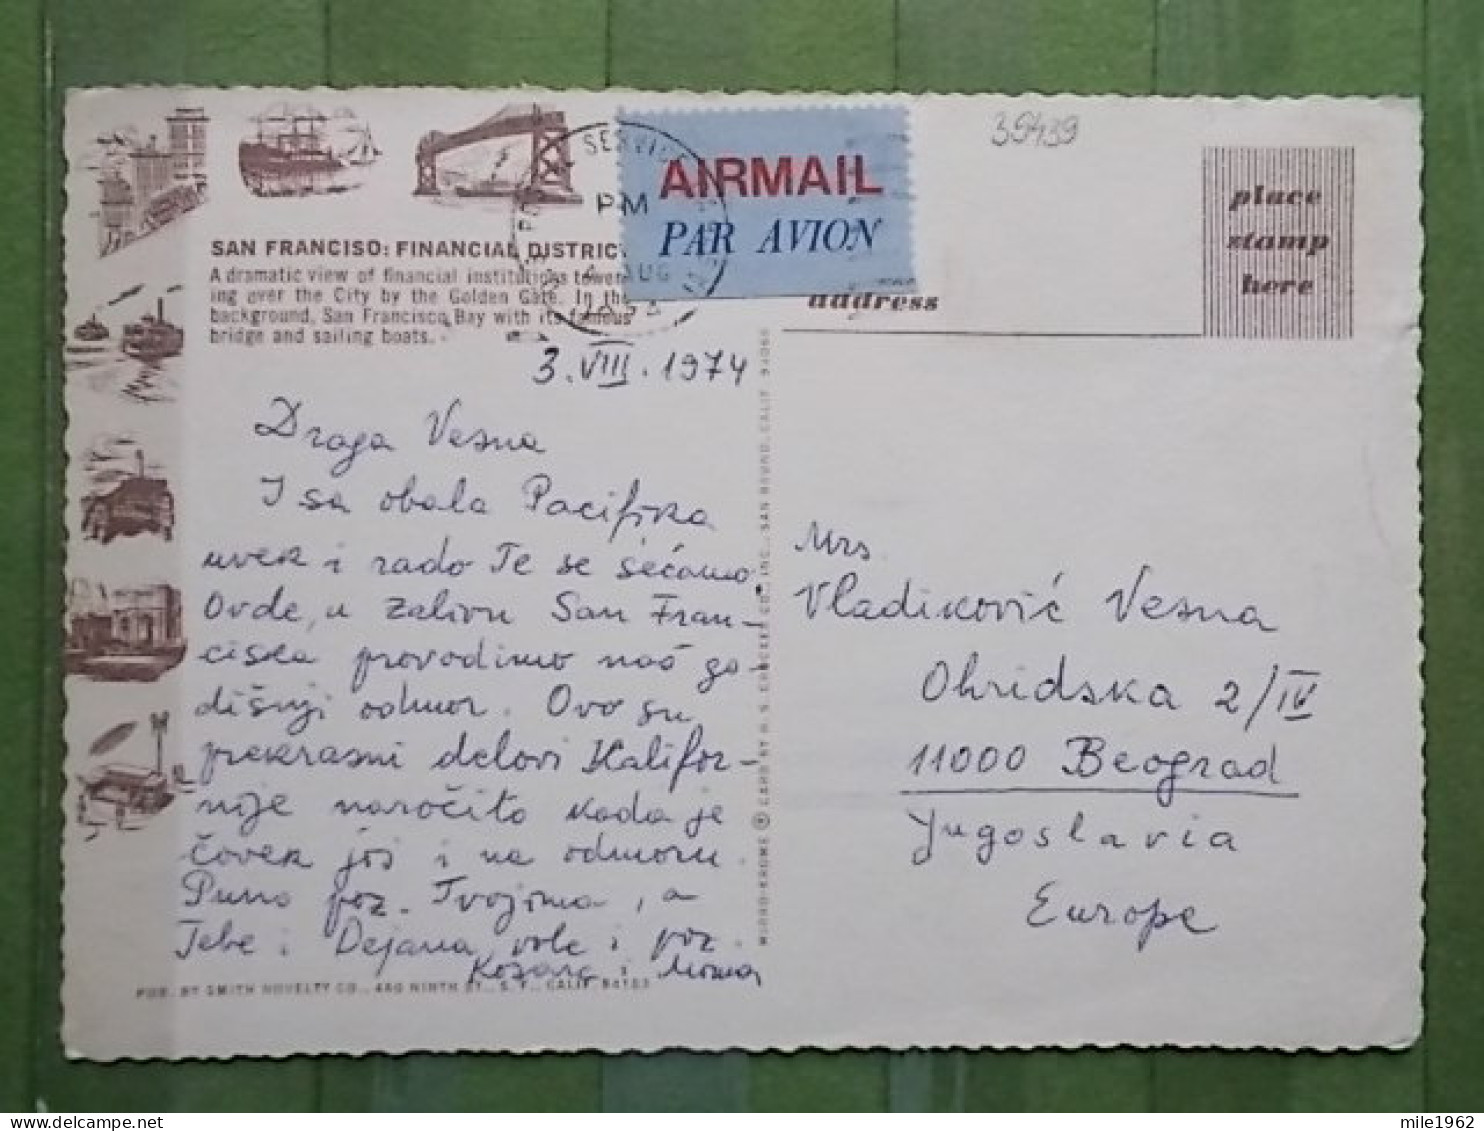 39439
SERVI
PM
AUG
AIRMAIL
PAR AVION
place
stamp
here
address
SAN FRANCISO: FINANCIAL DISTRIC
A dramatic view of financial institutions tower-
ing over the City by the Golden Gate. In the
background, San Francisco Bay with its famous
bridge and sailing boats.
3. VIII. 1974
Draga Vesna
I sa obala Pacifika
uvek i rado Te se sećamo.
Ovde, u zalivu San Fran-
ciska provodimo naš go-
dišnji odmor. Ovo su
prekrasni delovi Kalifor-
nije naročito kada je
čovek još i na odmoru.
Puno poz. Tvojima, a
Tebe i Dejana vole i poz.
i Moma
PUB. BY SMITH NOVELTY CO., 460 NINTH ST., S. F., CALIF. 94103
MIRRO-KROME © CARD BY H. S. CROCKER CO., INC., SAN BRUNO, CALIF. 94066
Mrs
Vladiković Vesna
Ohridska 2/IV
11000 Beograd
Yugoslavia
Europe
mile1962